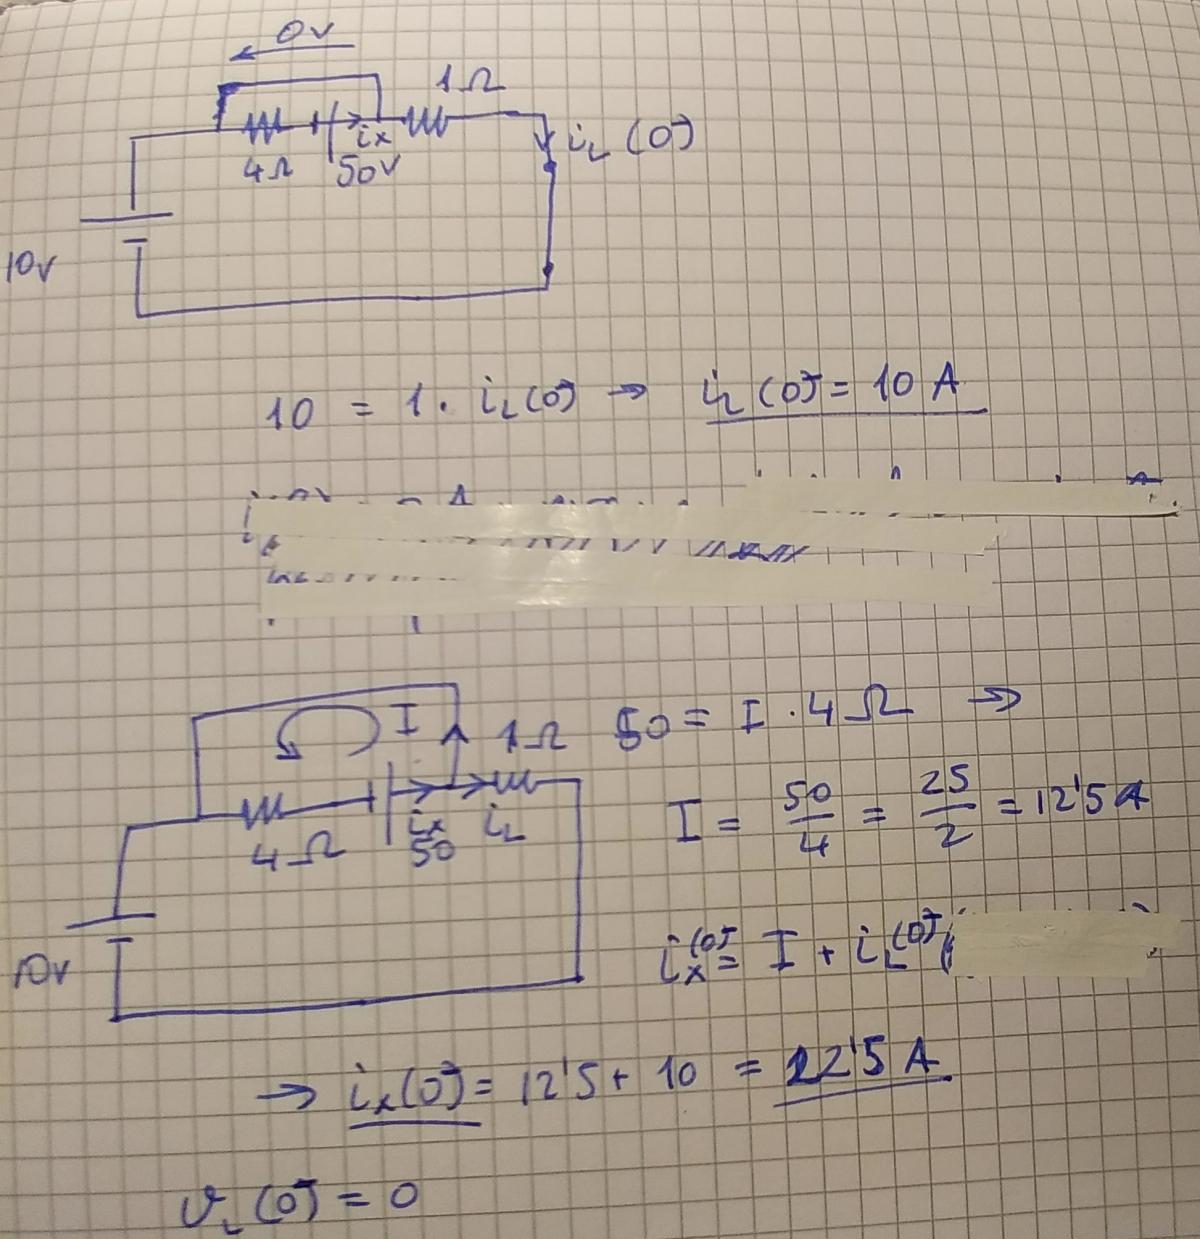 0V
1Ω
4Ω
ix
50V
iL(0⁻)
10V
10 = 1 · iL(0⁻) → iL(0⁻) = 10 A
I
1Ω
50 = I · 4Ω →
4Ω
ix
50
iL
I = 50/4 = 25/2 = 12'5 A
10V
ix(0⁻) = I + iL(0⁻)
→ ix(0⁻) = 12'5 + 10 = 22'5 A
vL(0⁻) = 0